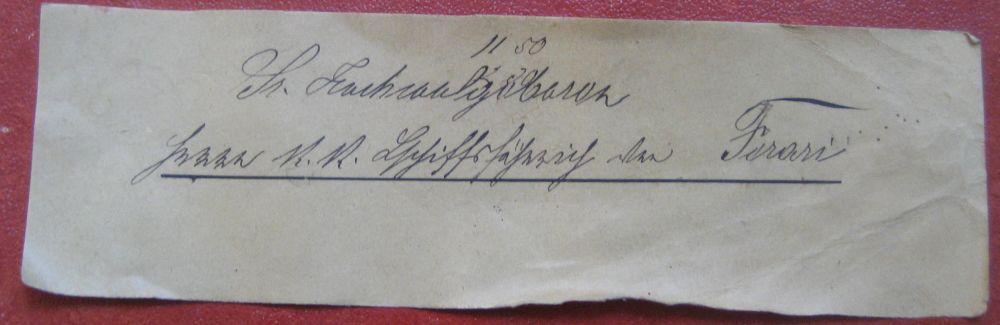 11 50
Sr. Hochwolgeboren
Herrn K. K. Schiffsfähnrich von Ferari